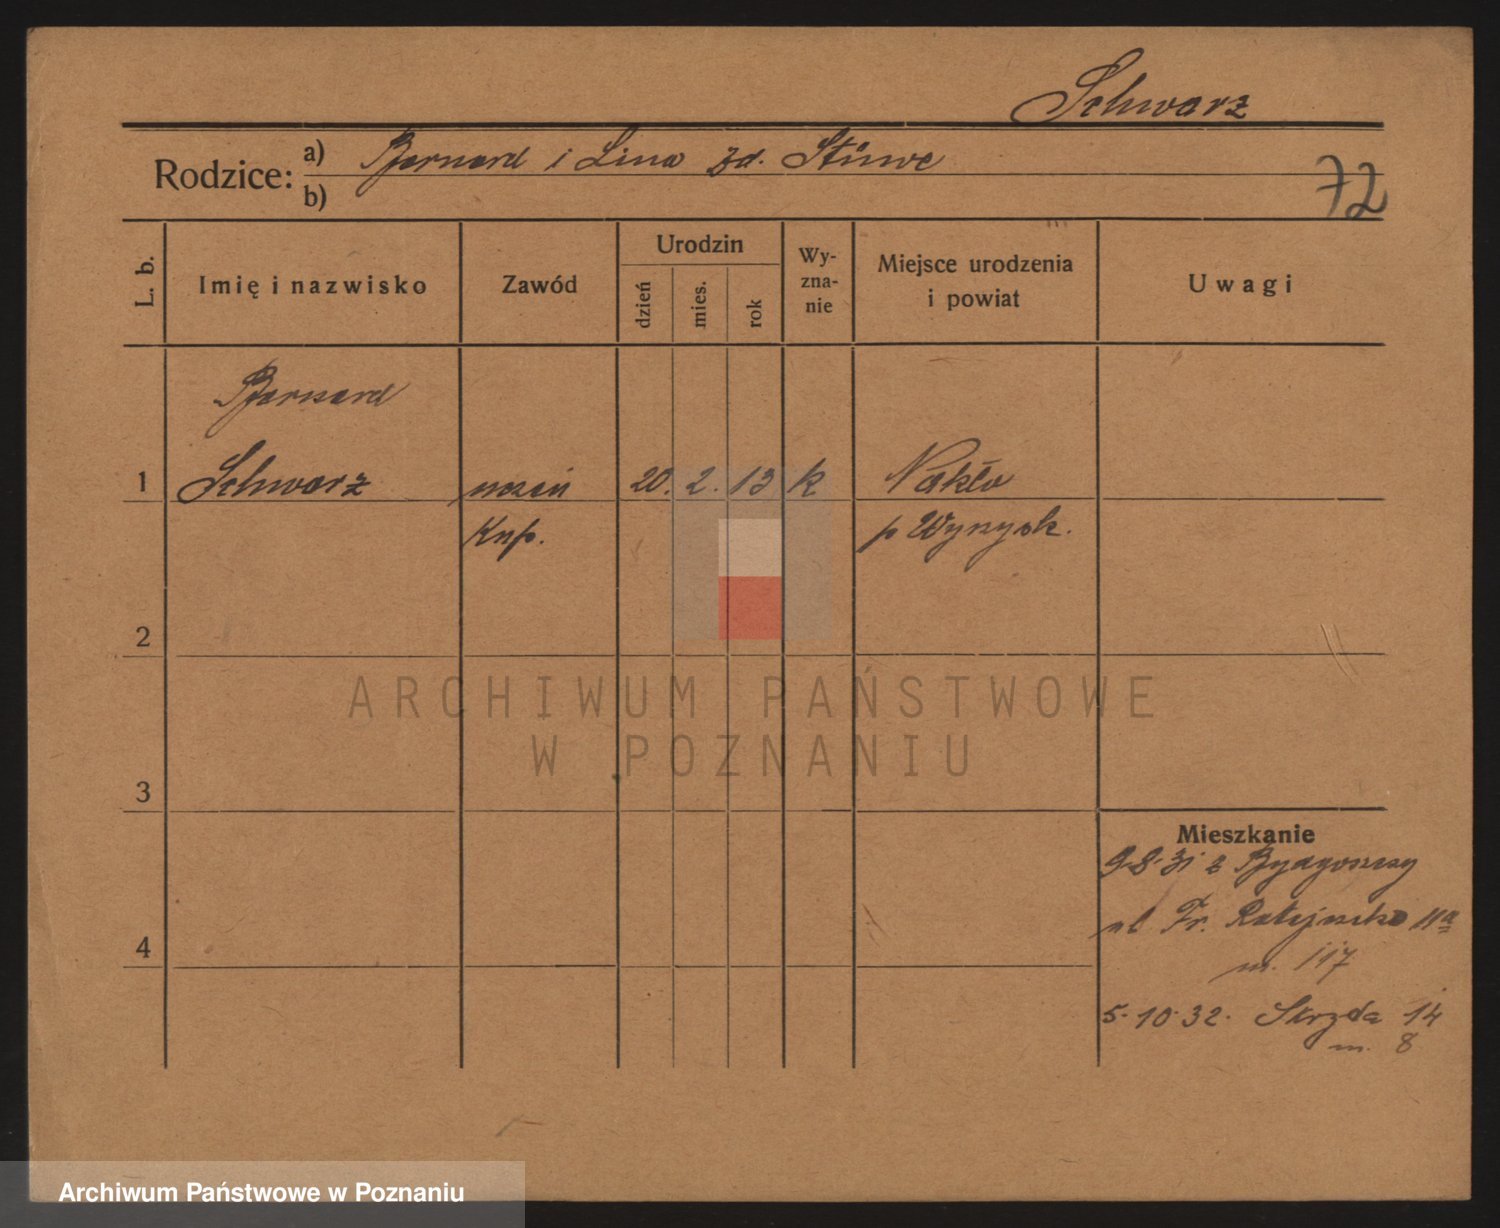 Schwarz
Rodzice: a) Bernard i Lina zd. Stüwe
b)
72
L. b.
Imię i nazwisko
Zawód
Urodzin
dzień
mies.
rok
Wy-
zna-
nie
Miejsce urodzenia
i powiat
Uwagi
Bernard
1 Schwarz uczeń 20. 2. 13 k Nakło
Kup. p Wyrzysk.
2
3
4
Mieszkanie
9-8-31 z Bydgoszczy
ul Fr. Ratajczaka 11a
m. 117
5-10-32. Skryta 14
m. 8
ARCHIWUM PAŃSTWOWE
W POZNANIU
Archiwum Państwowe w Poznaniu